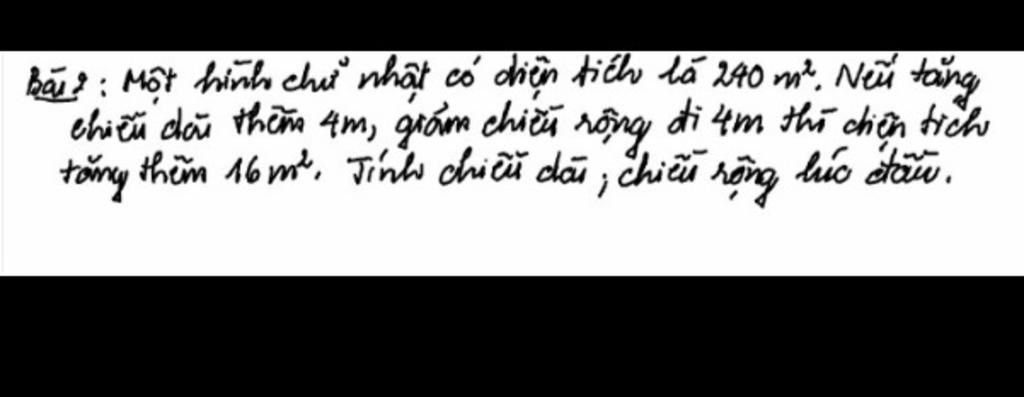 Bài 2: Một hình chữ nhật có diện tích là 240 m². Nếu tăng
chiều dài thêm 4m, giảm chiều rộng đi 4m thì diện tích
tăng thêm 16 m². Tính chiều dài, chiều rộng lúc đầu.